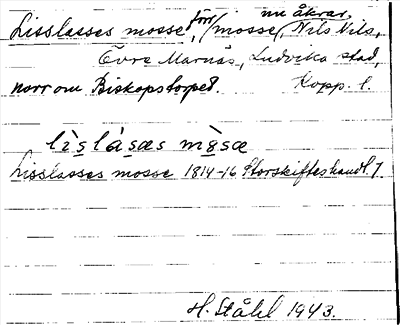 Lisslasses mosse, förr /mosse/, nu åkrar, Nils Nils,
Övre Marnäs, Ludvika stad,
norr om Biskopstorpet. Kopp. l.
lìslásæs mòsæ
Lisslasses mosse 1814-16 Storskifteshandl. 7
H. Ståhl 1943.